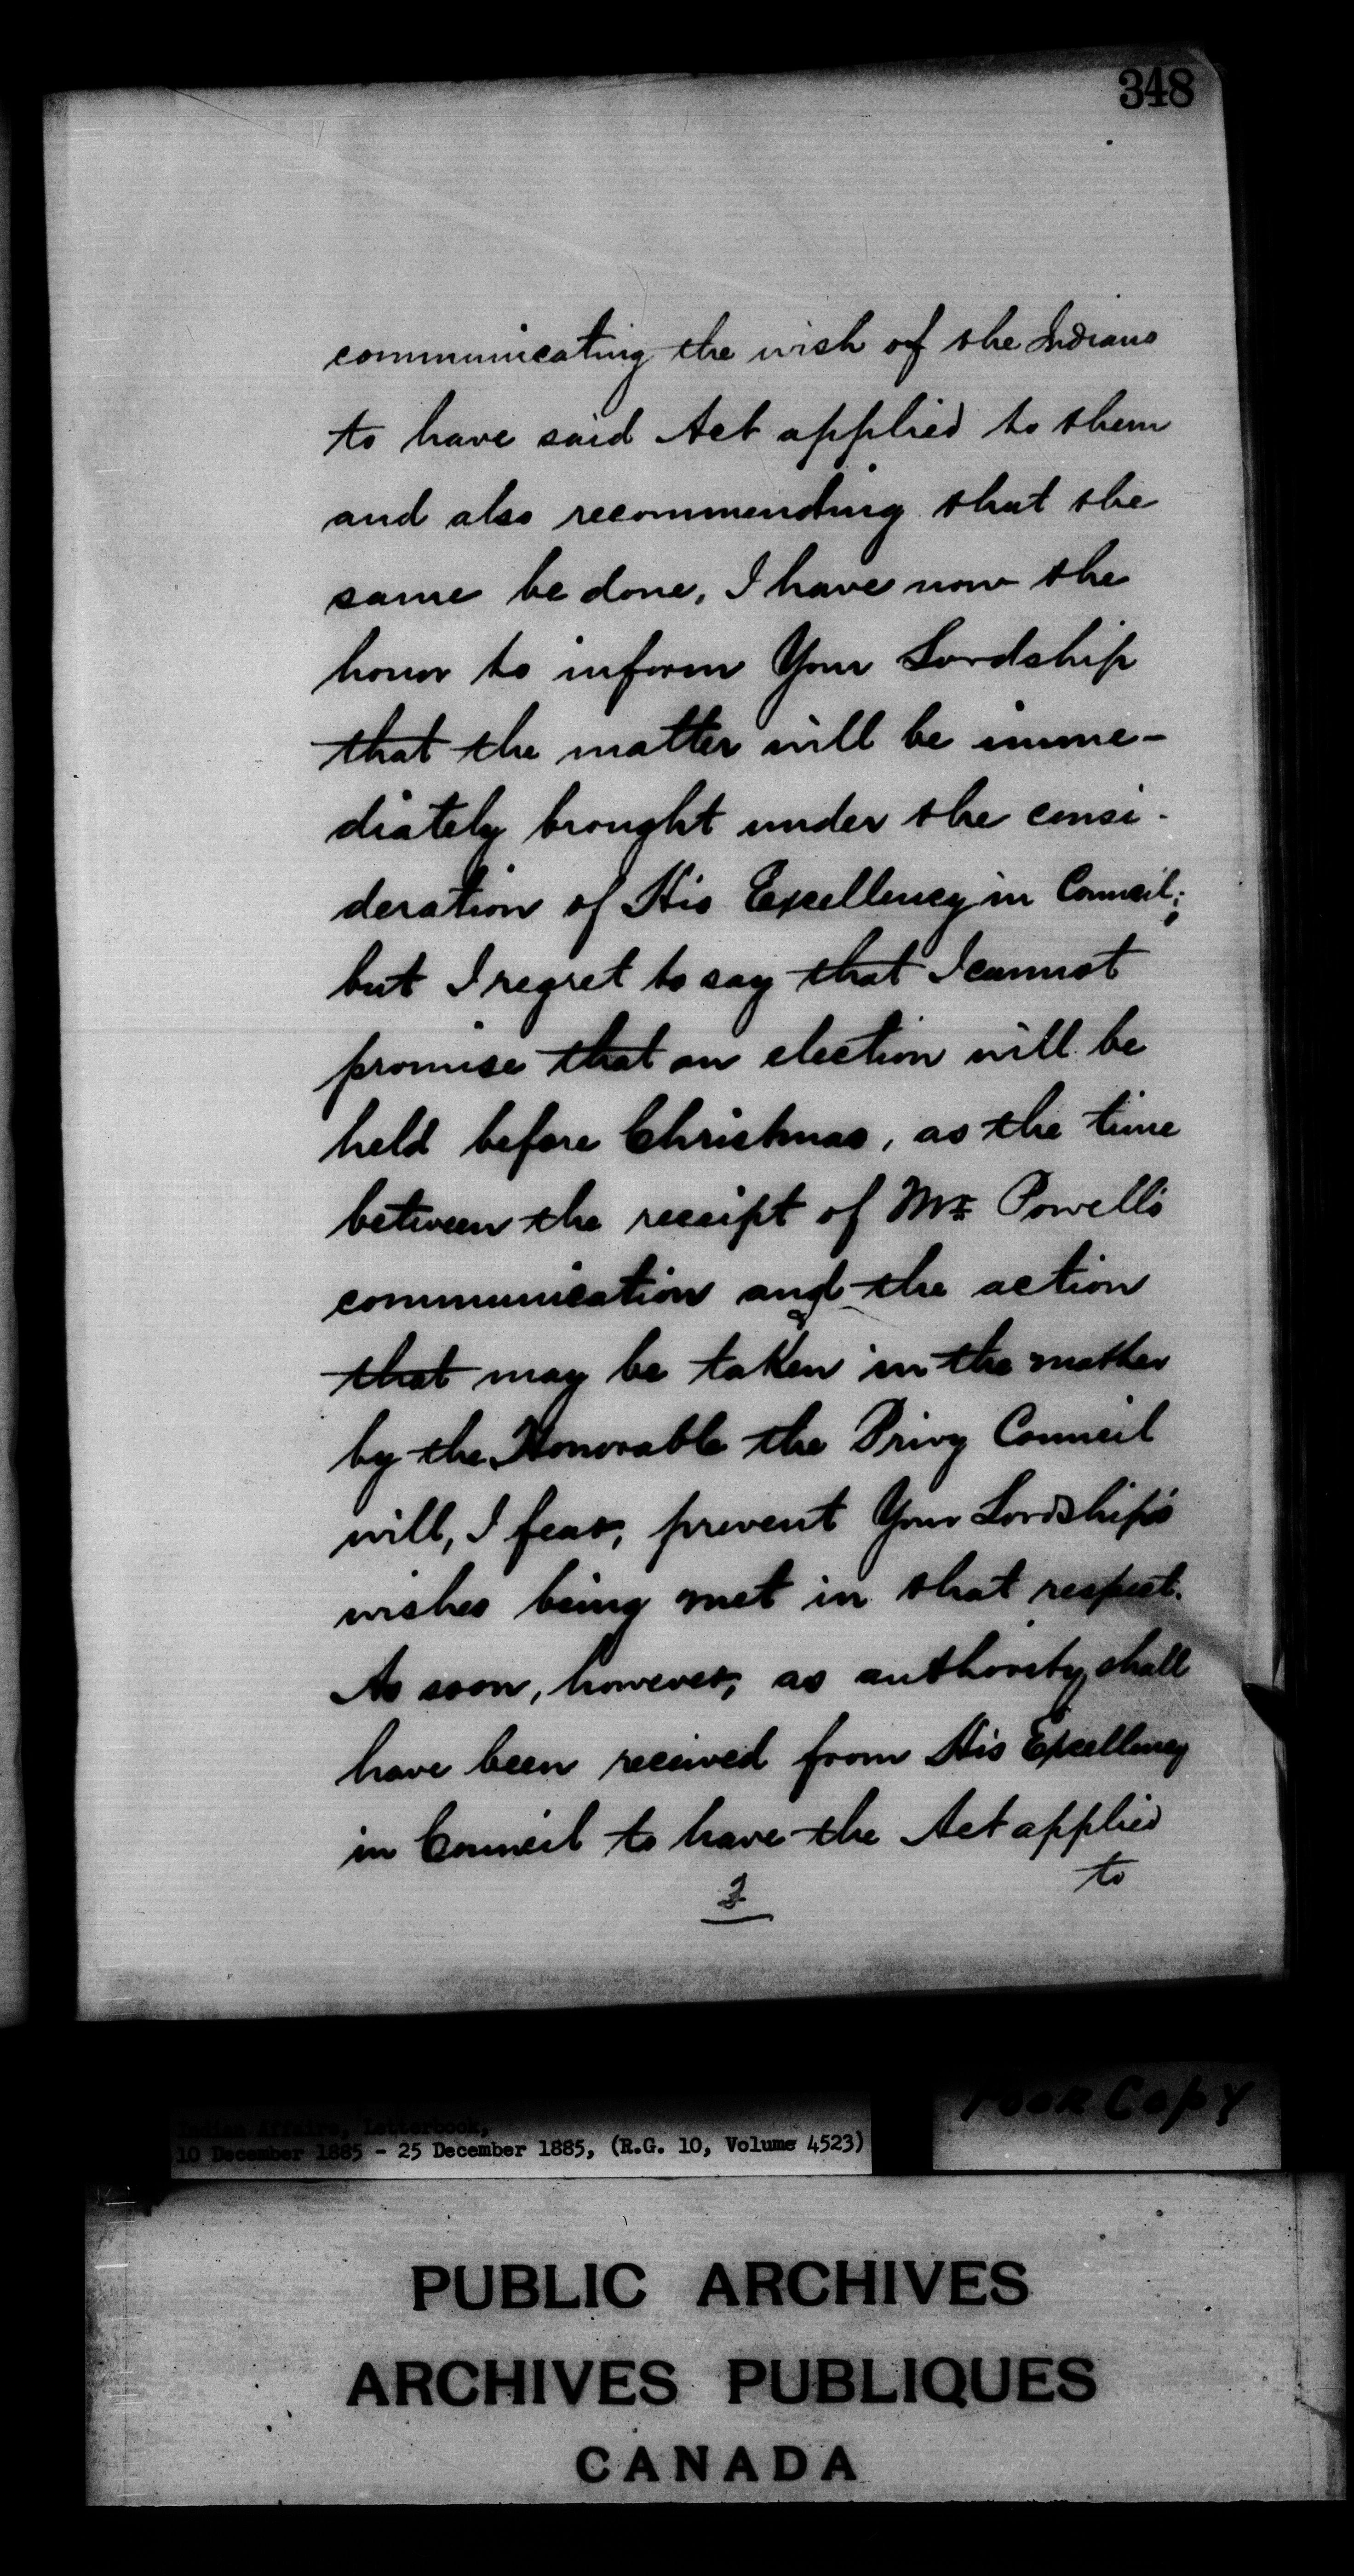 348
communicating the wish of the Indians
to have said Act applied to them
and also recommending that the
same be done, I have now the
honor to inform Your Lordship
that the matter will be imme-
diately brought under the consi-
deration of His Excellency in Council;
but I regret to say that I cannot
promise that an election will be
held before Christmas, as the time
between the receipt of Mr Powell's
communication and the action
that may be taken in the matter
by the Honorable the Privy Council
will, I fear, prevent Your Lordship's
wishes being met in that respect.
As soon, however, as authority shall
have been received from His Excellency
in Council to have the Act applied
to
2
Indian Affairs, Letterbook,
10 December 1885 - 25 December 1885, (R.G. 10, Volume 4523)
Poor Copy
PUBLIC ARCHIVES
ARCHIVES PUBLIQUES
CANADA